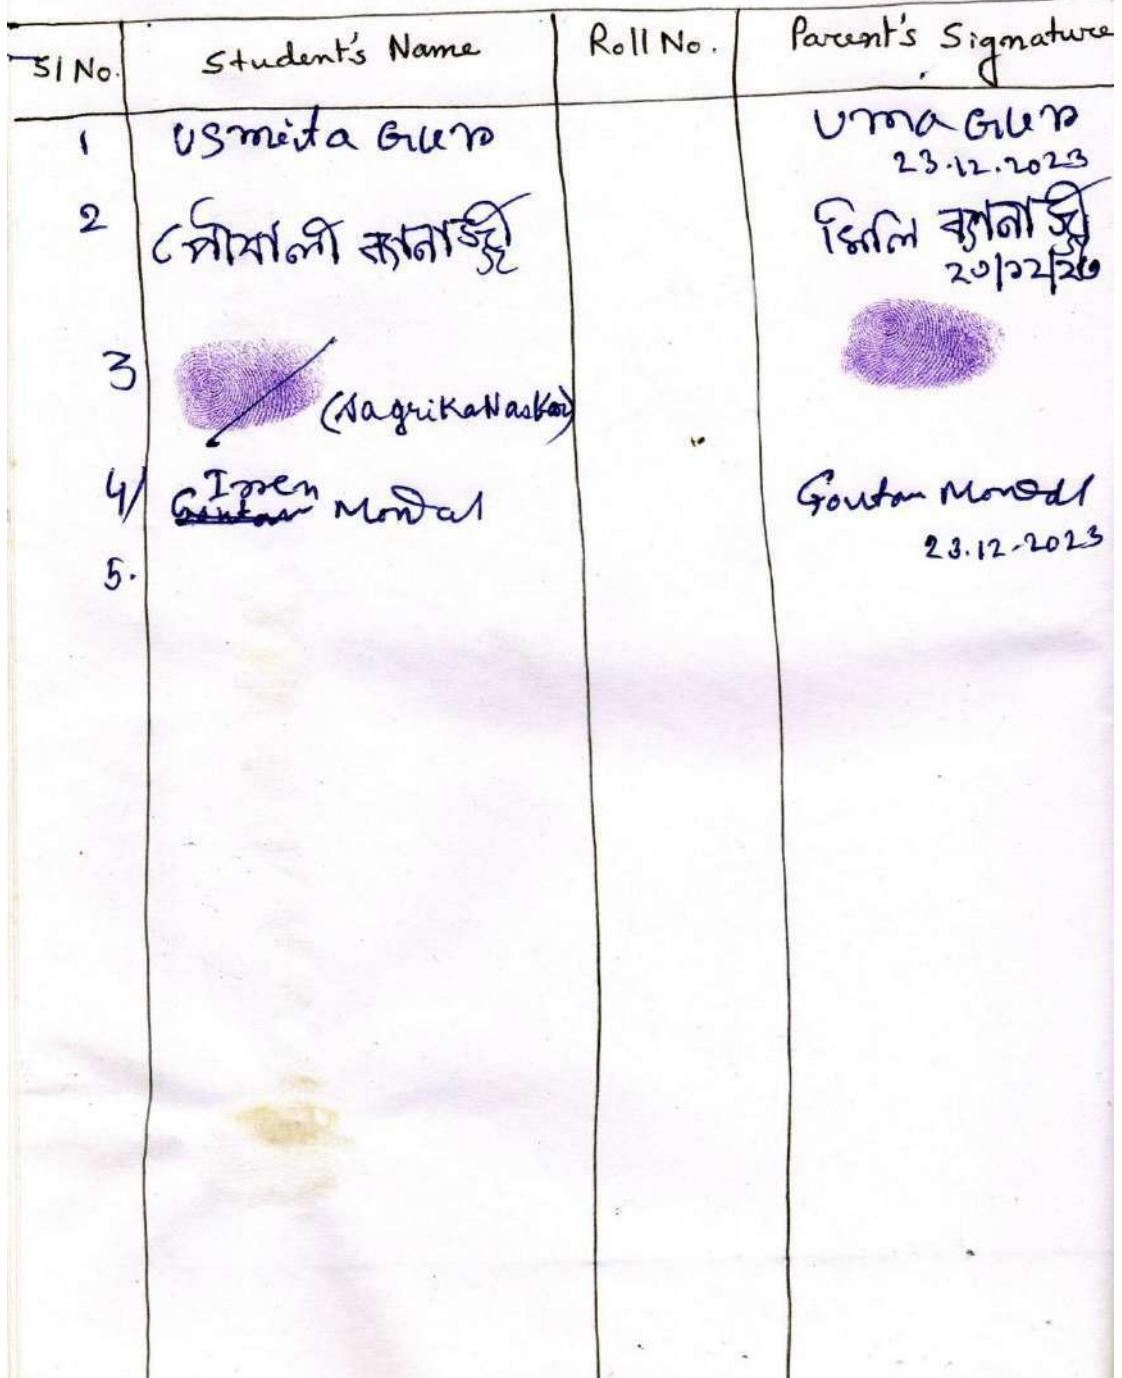 Sl No. Student's Name Roll No. Parent's Signature
1 Usmita Guen Uma Guen
23.12.2023
2 পৌষালী ব্যানার্জ্জী মিলি ব্যানার্জ্জী
২৩/১২/২৩
3 (Sagrika Naskar)
Goutam
4/ Iren Mondal Goutam Mondal
23.12.2023
5.